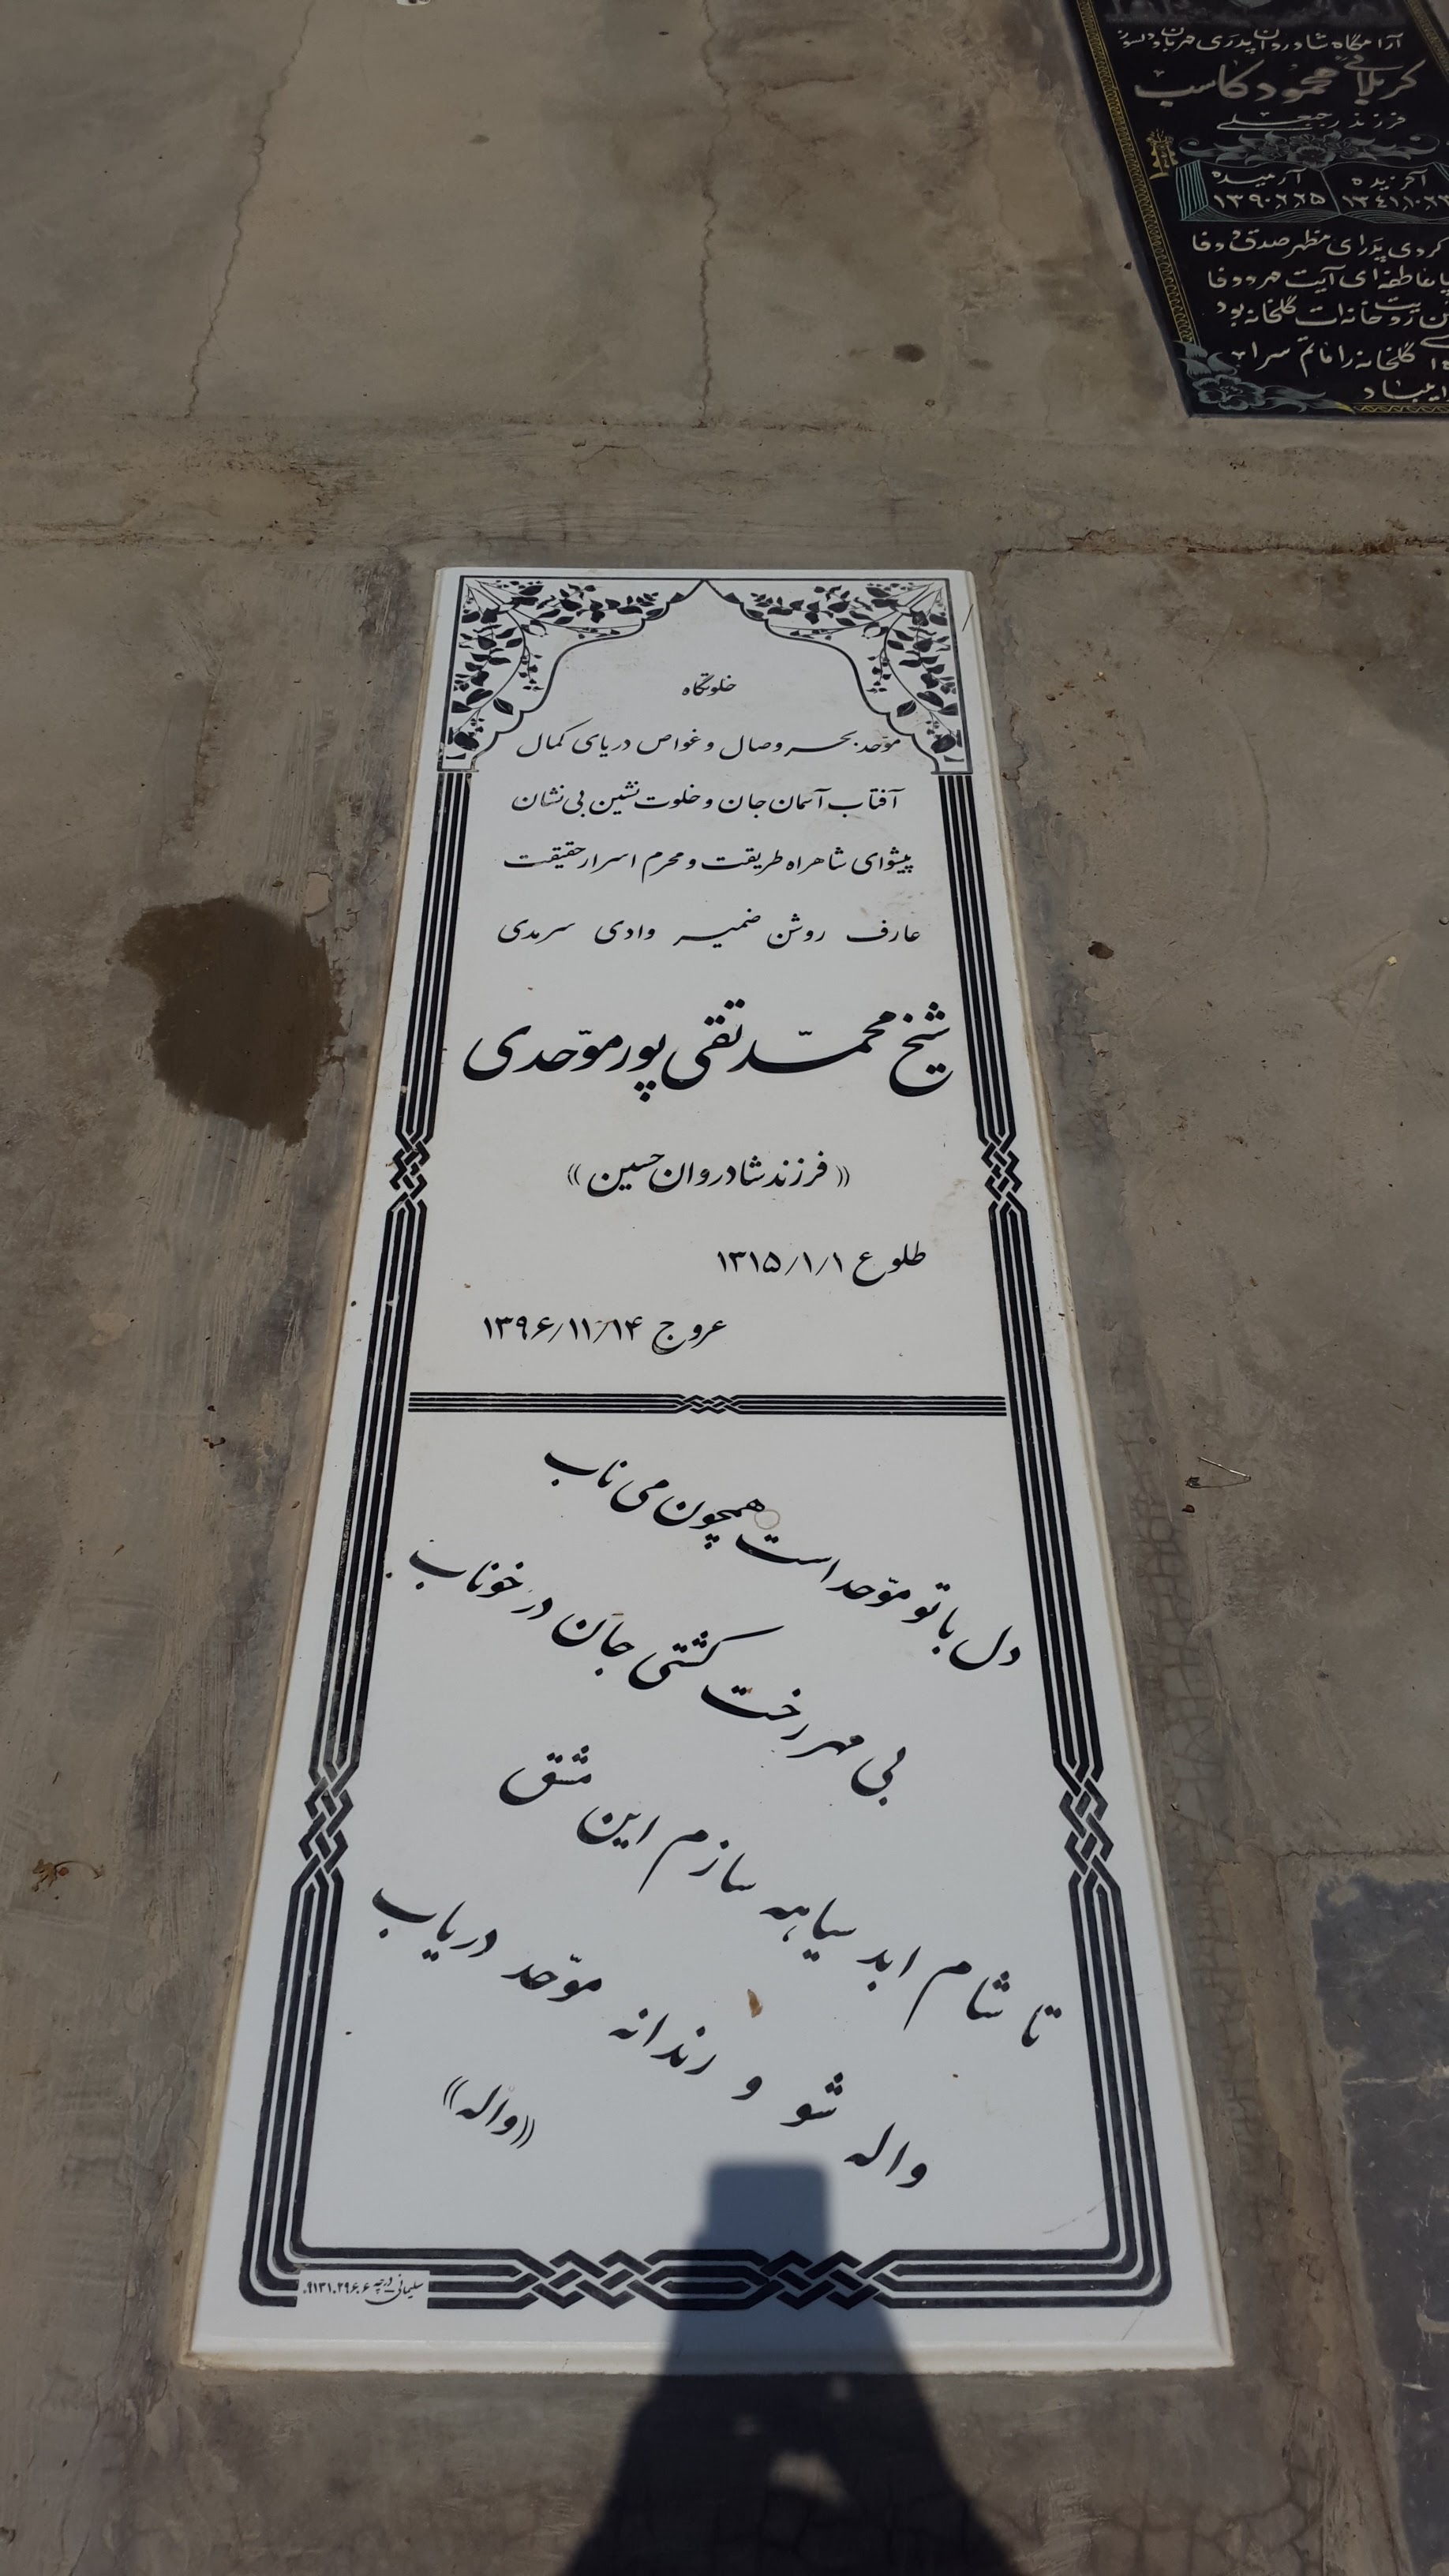 آرامگاه شادروان پدری مهربان و دلسوز
کربلائی محمود کاسب
فرزند رجبعلی
آفریده آرمیده
۱۳۹۰٫۶٫۲۵
کردی پدر ای مظهر صدق و وفا
عاطفه ای آیت مهر و وفا
رویت خانه ات گلخانه بود
گلخانه را ماتم سرا
خلوتگاه
موّحد بحر وصال و غواص دریای کمال
آفتاب آسمان جان و خلوت نشین بی نشان
پیشوای شاهراه طریقت و محرم اسرار حقیقت
عارف روشن ضمیر وادی سرمدی
شیخ محمّد تقی پور موّحدی
((فرزند شادروان حسین))
طلوع ۱۳۱۵/۱/۱
عروج ۱۳۹۶/۱۱/۱۴
دل با تو موّحد است همچون می ناب
بی مهر رخت کشتی جان در خوناب
تا شام ابد سیاهه سازم این مشق
واله شو و رندانه موّحد دریاب
((واله))
سلیمانی درچه ۰۹۱۳۱۰۲۹۶۰۶